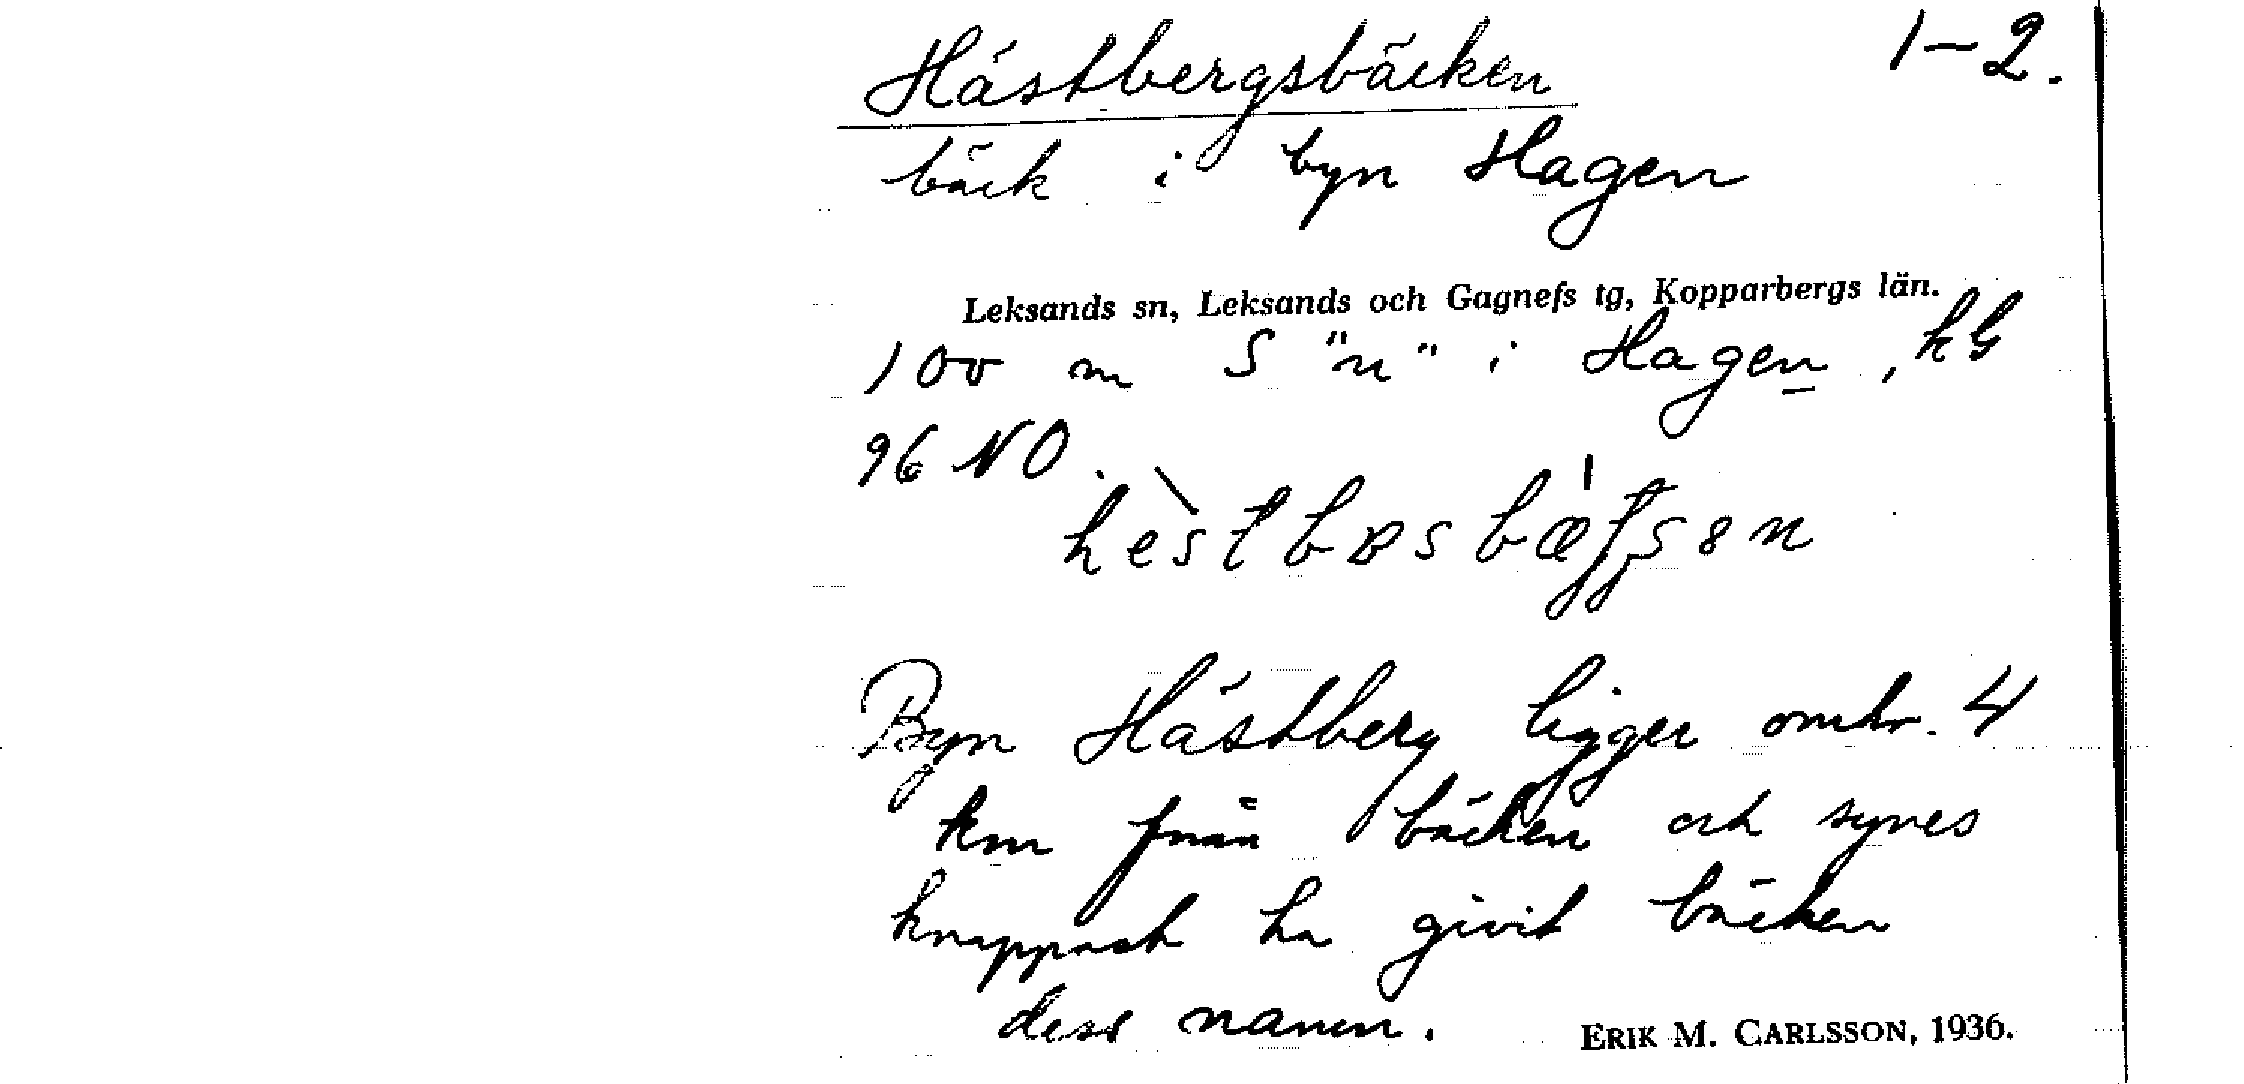 Hästbergsbäcken 1–2.
bäck i byn Hagen
Leksands sn, Leksands och Gagnefs tg, Kopparbergs län.
100 m S "n" i Hagen, kb
96 NO.
Byn Hästberg ligger omkr. 4
km från bäcken och synes
knappast ha givit bäcken
dess namn. ERIK M. CARLSSON, 1936.